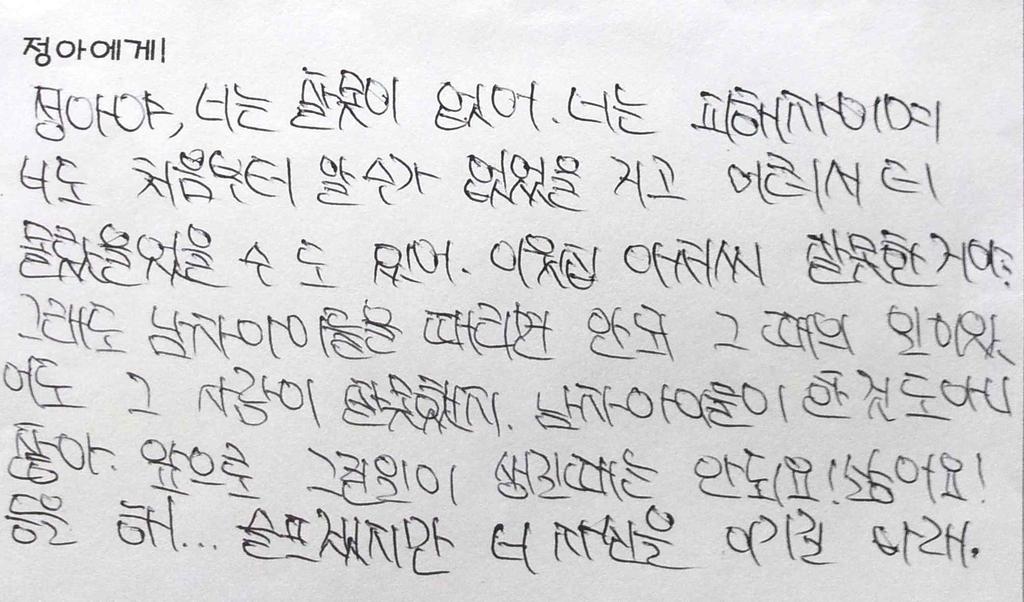 정아에게!
정아야, 너는 잘못이 없어. 너는 피해자이며
너도 처음부터 알 수가 없었을 거고 어려서 더
몰랐을었을 수 도 있어. 이웃집 아저씨 잘못한거야.
그래도 남자아이들을 때리면 안돼 그 때의 일이있
어도 그 사람이 잘못했지. 남자아이들이 한 것도아니
잖아. 앞으로 그런일이 생길때는 안되요! 싫어요!
등을 해... 슬프겠지만 너 자신을 아끼길 바래.